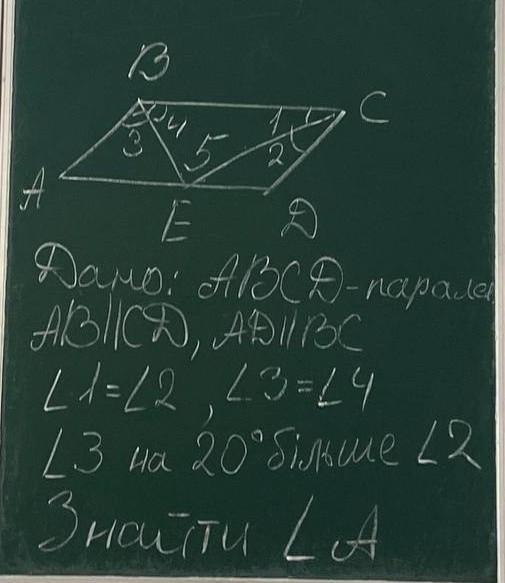 B
C
1
4
3
5
2
A
E
D
Дано: ABCD-парале
AB||CD, AD||BC
∠1=∠2, ∠3=∠4
∠3 на 20° більше ∠2
Знайти ∠A